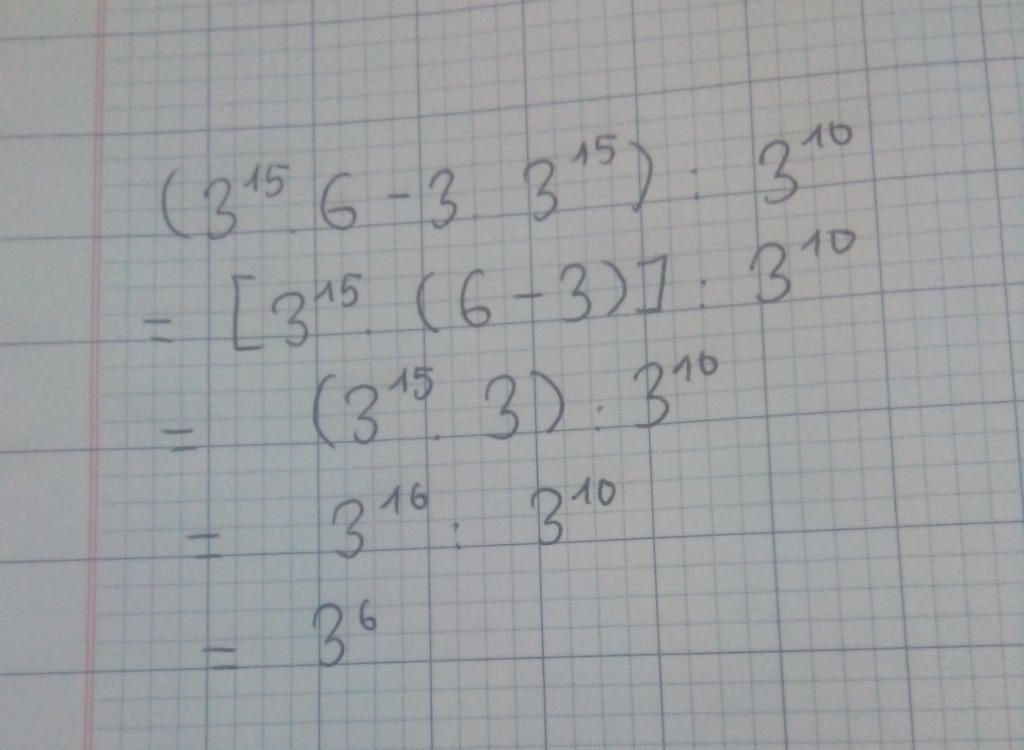 (3¹⁵ . 6 - 3 . 3¹⁵) : 3¹⁰
= [3¹⁵ . (6 - 3)] : 3¹⁰
= (3¹⁵ . 3) : 3¹⁰
= 3¹⁶ : 3¹⁰
= 3⁶